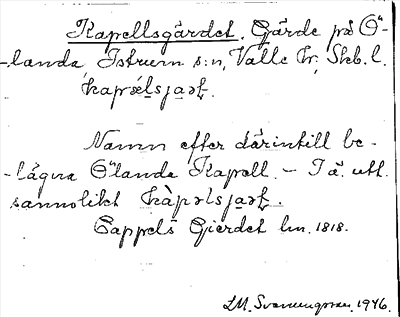 Kapellsgärdet. Gärde på Ö-
-landa Istrum s:n, Valle hr, Skb. l.
kapélsjaʒt.
Namn efter därintill be-
-lägna Ölanda Kapell. – I ä. utt.
sannolikt kàpəlsjaʒt.
Cappels Gierdet lm. 1818.
LM. Svanungsson. 1946.